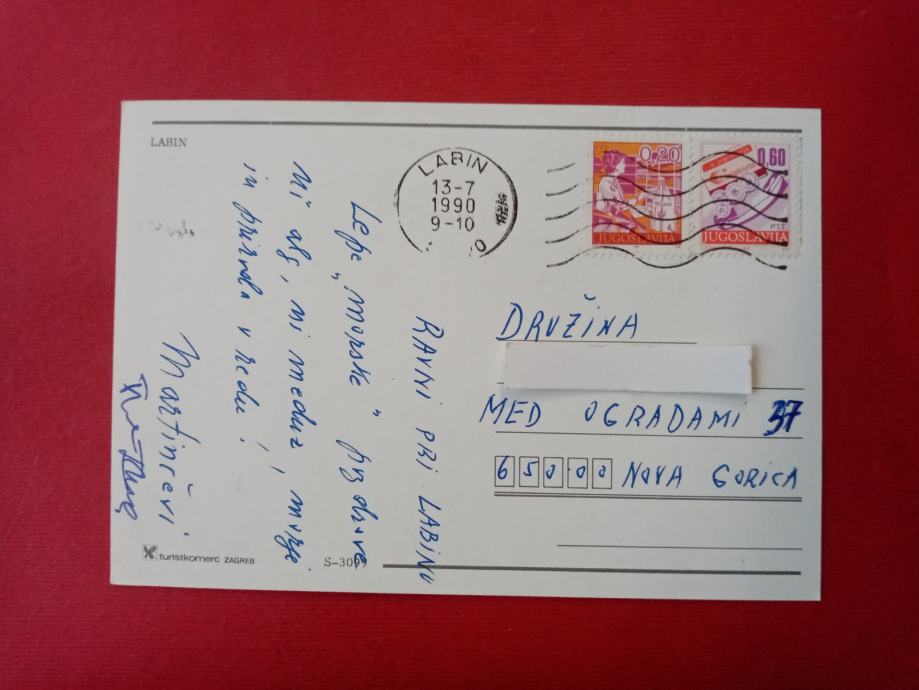 LABIN
LABIN
13-7
1990
9-10
0.20
JUGOSLAVIJA
0.60
PTT
JUGOSLAVIJA
RAVNI PRI LABINU
Lepe „morske" pozdrave
Ni alg, ni meduz, morje
in priroda v redu!
Martinčevi
DRUŽINA
MED OGRADAMI 37
65000 NOVA GORICA
turistkomerc ZAGREB
S-309